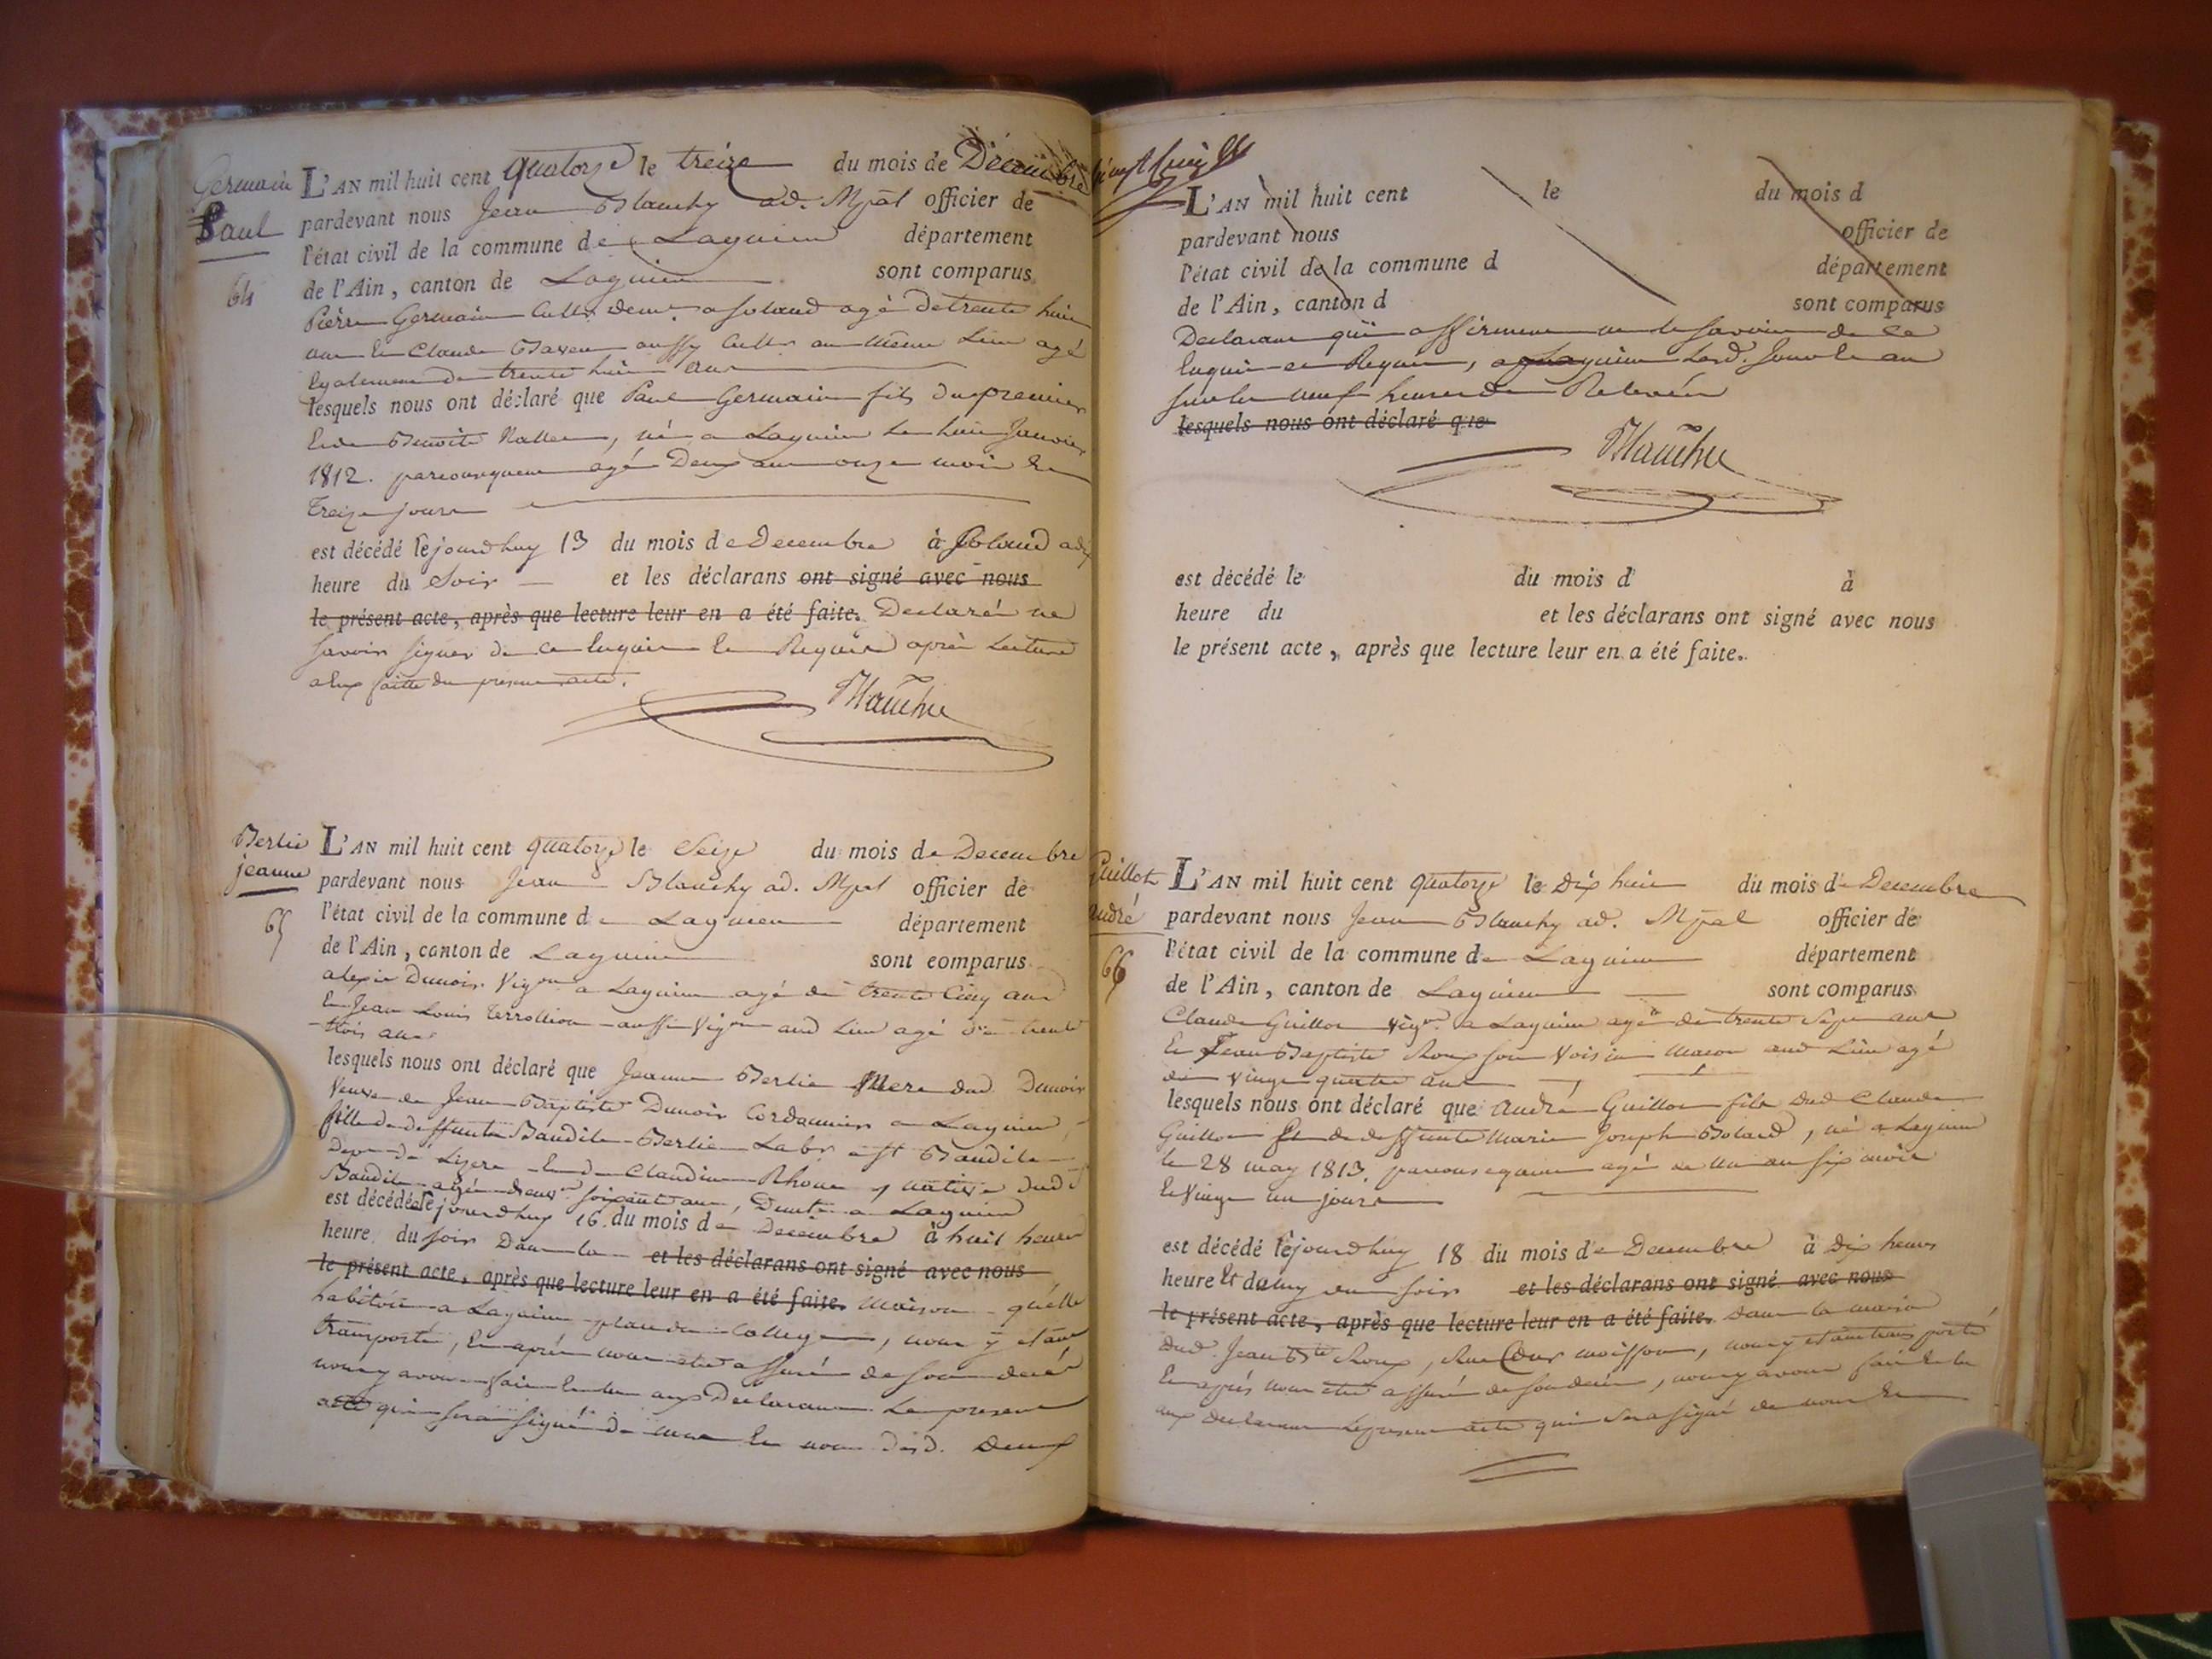 Germain
Paul
64
L'AN mil huit cent quatorze le treize du mois de Décembre
pardevant nous Jean Blanchy ad. Mpal officier de
l'état civil de la commune de Lagnieu département
de l'Ain, canton de Lagnieu sont comparus
Pierre Germain Cultr. demt. a Soland agé de trente huit
ans et Claude aussy Cultr. au même Lieu agé
Egalement de trente huit ans
lesquels nous ont déclaré que Paul Germain fils du premier
Et de Benoite, né a Lagnieu Le huit Janvier
1812. parconsequent agé Deux ans onze mois Et
Treize jours
est décédé le jourdhuy 13 du mois de Decembre à Soland a dix
heure du Soir et les déclarans ont signé avec nous
le présent acte, après que lecture leur en a été faite. Declaré ne
savoir signer de ce Enquis Et Requis après Lecture
a Eux faitte du present acte.
Blanchy
Berlie
jeanne
65
L'AN mil huit cent quatorze le Seize du mois de Decembre
pardevant nous Jean Blanchy ad. Mpal officier de
l'état civil de la commune de Lagnieu département
de l'Ain, canton de Lagnieu sont comparus
alexis Dunoir Vigon a Lagnieu agé de trente Cinq ans
Et Jean Louis aussi Vigon aud Lieu agé de trente
trois ans
lesquels nous ont déclaré que Jeanne Berlie Mere dud Dunoir
Veuve de Jean Baptiste Dunoir Cordonnier a Lagnieu,
fille de deffunts Baudile Berlie Labr a St Baudile
Dept de Lizere Et de Claudine native dud St
Baudile agée denvn. soixante ans, Demte a Lagnieu
est décédée le jourdhuy 16 du mois de Decembre à huit heures
heure du soir Dans la et les déclarans ont signé avec nous
le présent acte, après que lecture leur en a été faite. maison qu'elle
habitoit a Lagnieu place du College, nous y etant
transporté, Et après nous etre assuré de son decès
nous y avons fait lecture aux Declarans Le present
acte qui sera signé de nous Et non desd. Deux
vingt huit
L'AN mil huit cent le du mois d
pardevant nous officier de
l'état civil de la commune d département
de l'Ain, canton d sont comparus
Declarans qui affirment ne le savoir de ce
Enquis et Requis, a Lagnieu Lesd. Jour et an
sur les neuf heures de Relevée
lesquels nous ont déclaré que
Blanchy
est décédé le du mois d à
heure du et les déclarans ont signé avec nous
le présent acte, après que lecture leur en a été faite.
Guillot
andré
66
L'AN mil huit cent quatorze le Dix huit du mois de Decembre
pardevant nous Jean Blanchy ad. Mpal officier de
l'état civil de la commune de Lagnieu département
de l'Ain, canton de Lagnieu sont comparus
Claude Guillot vign. a Lagnieu agé de trente Sept ans
Et Jean Baptiste Roux son Voisin macon aud Lieu agé
de vingt quatre ans
lesquels nous ont déclaré que andré Guillot fils dud Claude
Guillot Et de deffunte Marie Joseph Bolard, né a Lagnieu
le 28 may 1813. parconsequent agé de un an six mois
Et Vingt un jours
est décédé le jourdhuy 18 du mois de Decembre à Dix heures
heure Et demy du soir et les déclarans ont signé avec nous
le présent acte, après que lecture leur en a été faite. Dans la maison
dud Jean Bte Roux, Rue, nous y etant transporté
Et après nous etre assuré de son decès, nous y avons fait lecture
aux declarans Le present acte qui sera signé de nous Et